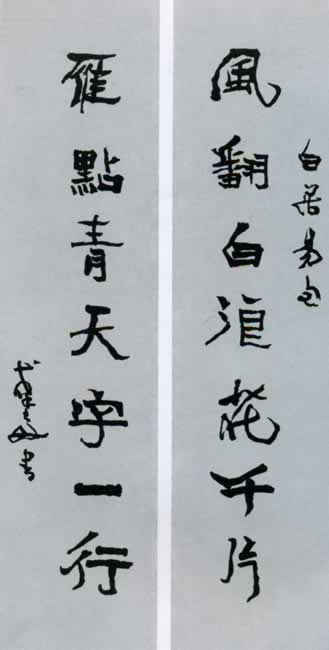 白居易句
風翻白浪花千片
雁點青天字一行
書